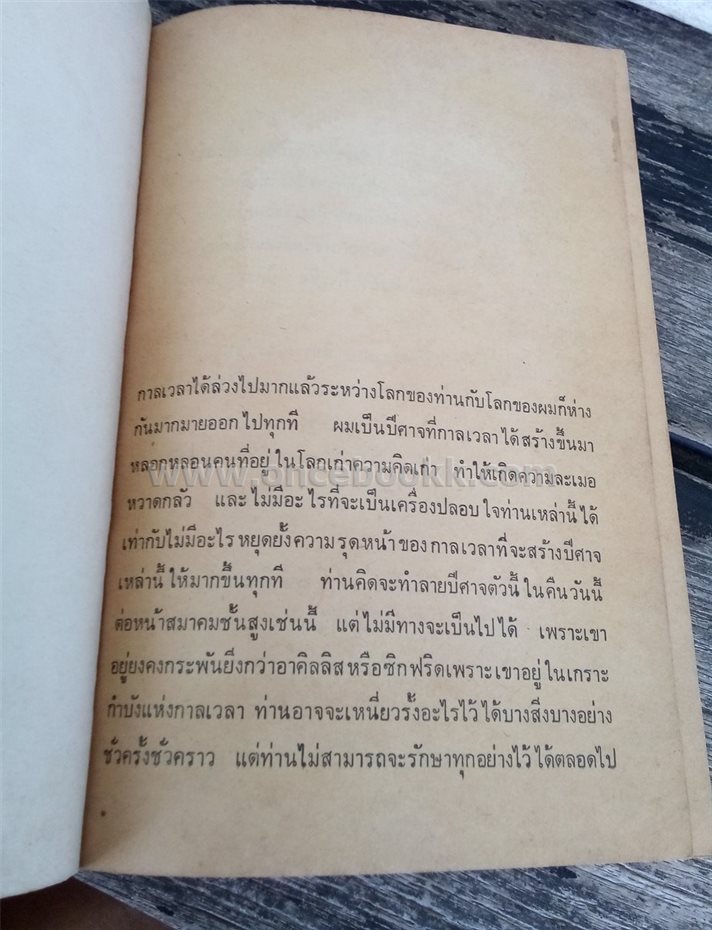 กาลเวลาได้ล่วงไปมากแล้วระหว่างโลกของท่านกับโลกของผมก็ห่าง
กันมากมายออกไปทุกที ผมเป็นปีศาจที่กาลเวลาได้สร้างขึ้นมา
หลอกหลอนคนที่อยู่ในโลกเก่าความคิดเก่า ทำให้เกิดความละเมอ
www.oncebookk.com
หวาดกลัว และไม่มีอะไรที่จะเป็นเครื่องปลอบใจท่านเหล่านี้ได้
เท่ากับไม่มีอะไรหยุดยั้งความรุดหน้าของกาลเวลาที่จะสร้างปีศาจ
เหล่านี้ให้มากขึ้นทุกที ท่านคิดจะทำลายปีศาจตัวนี้ในคืนวันนี้
ต่อหน้าสมาคมชั้นสูงเช่นนี้ แต่ไม่มีทางจะเป็นไปได้ เพราะเขา
อยู่ยงคงกระพันยิ่งกว่าอาคิลลิสหรือซิกฟริดเพราะเขาอยู่ในเกราะ
กำบังแห่งกาลเวลา ท่านอาจจะเหนี่ยวรั้งอะไรไว้ได้บางสิ่งบางอย่าง
ชั่วครั้งชั่วคราว แต่ท่านไม่สามารถจะรักษาทุกอย่างไว้ได้ตลอดไป